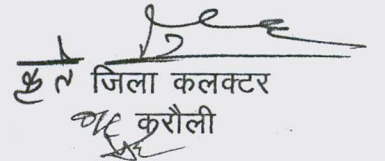 कृते जिला कलक्टर
करौली